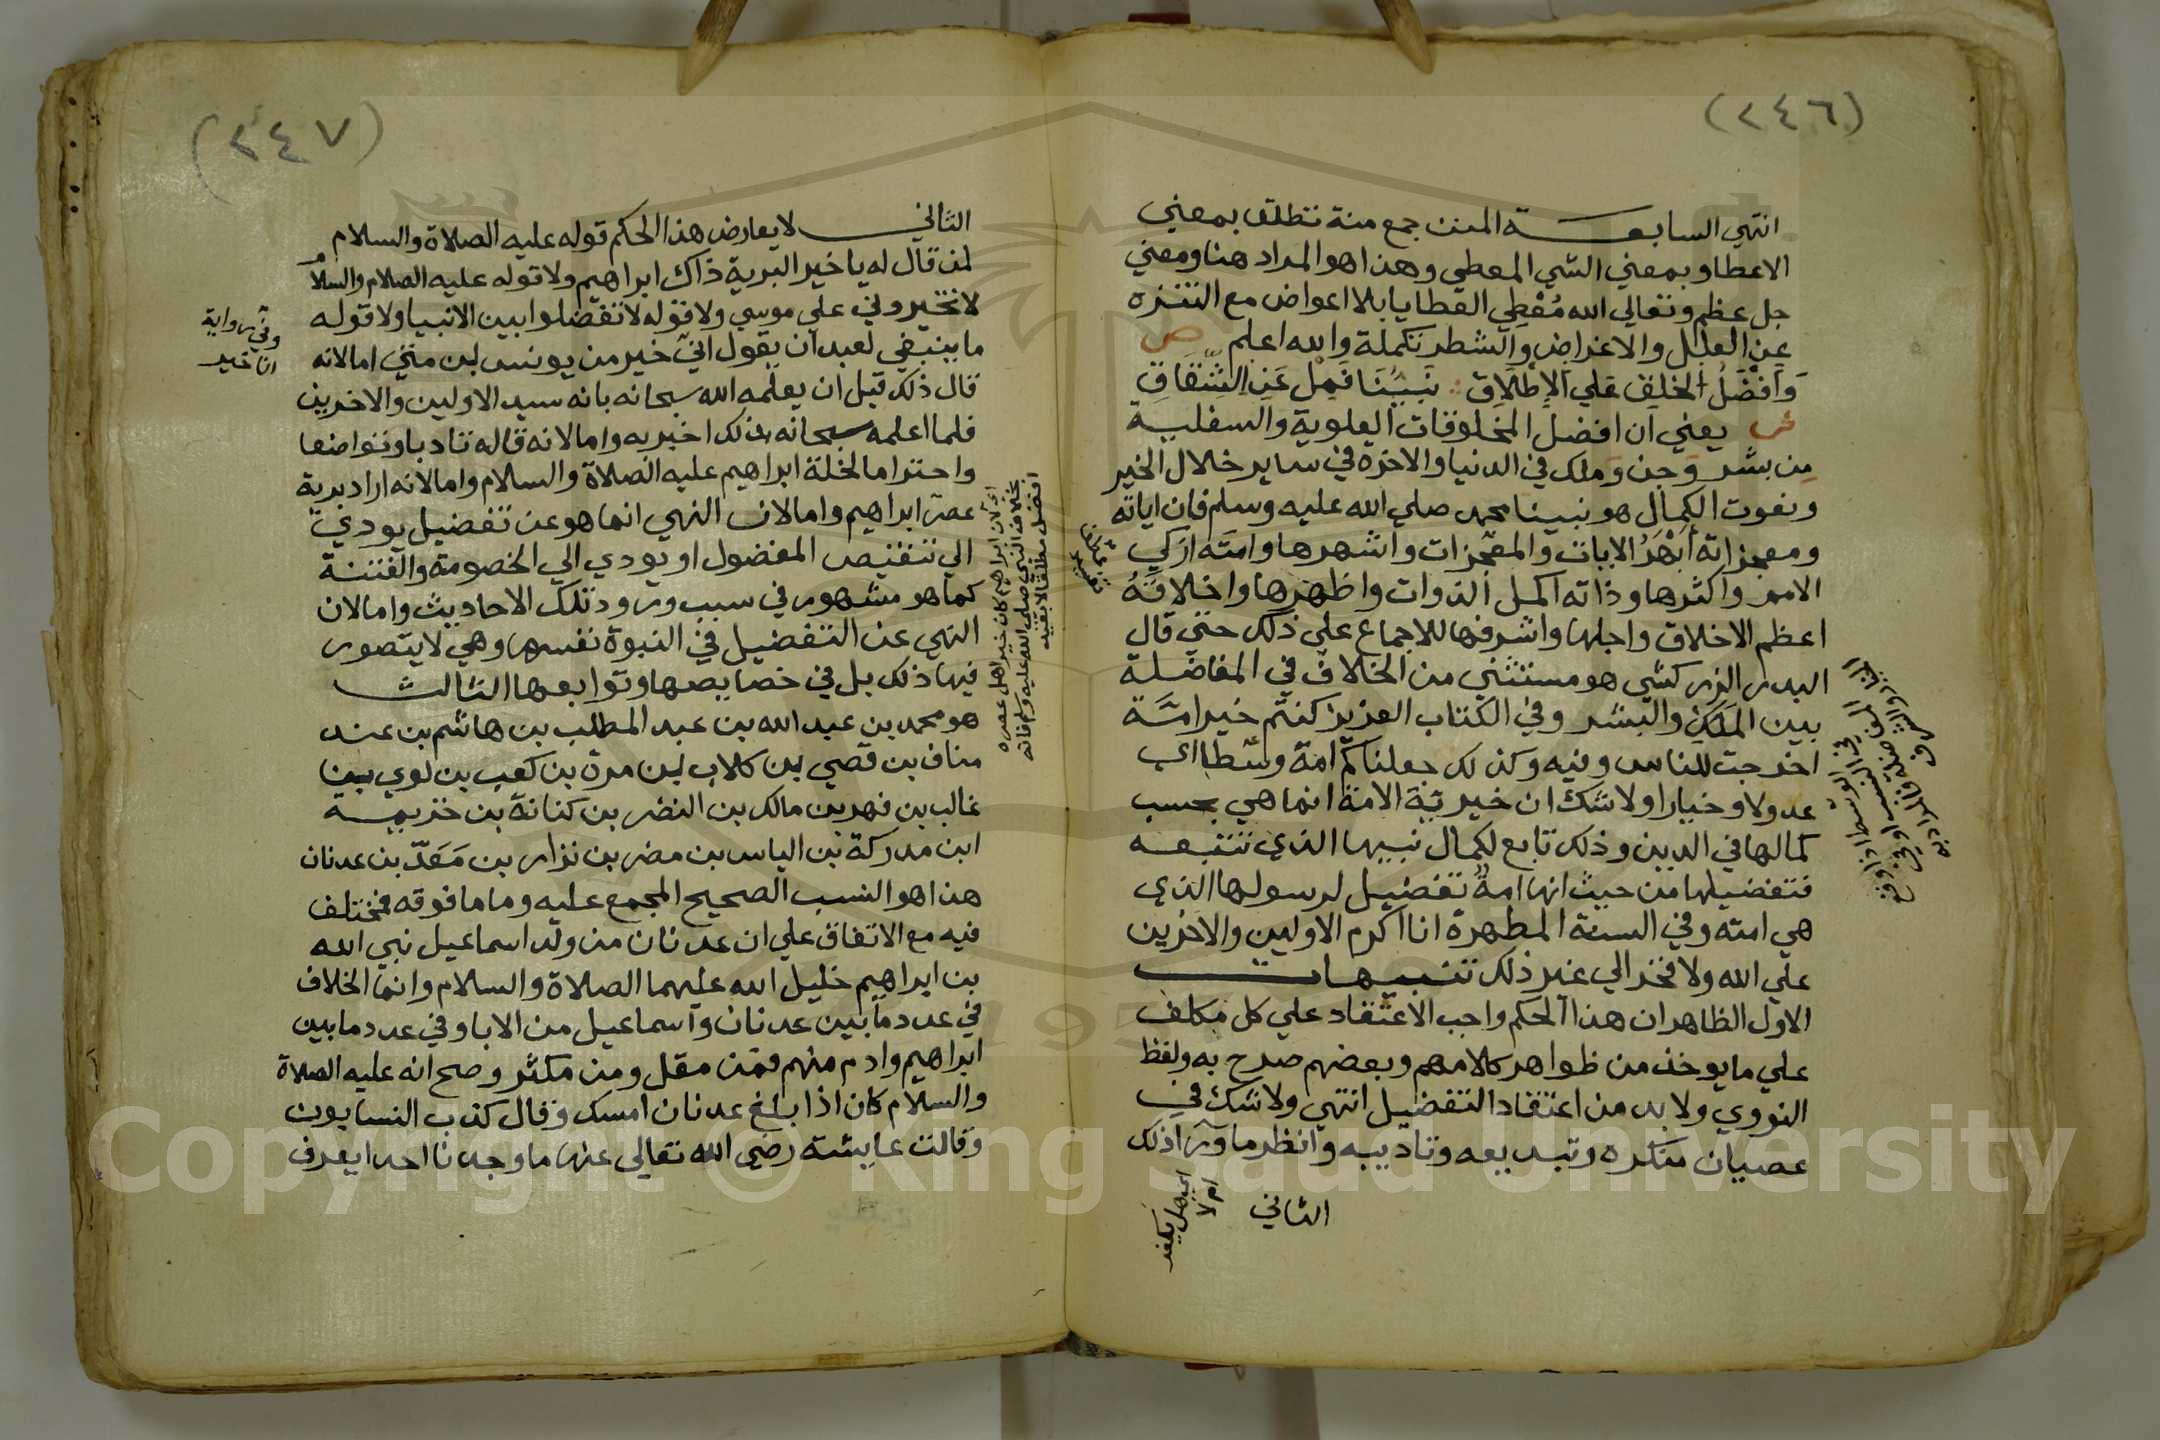 (٢٤٦)
انتهي السابعة المنن جمع منة تتطلق بمعني
الاعطا وبمعني الشي المعطي وهذا هو المراد هنا ومعني
جل عظم وتعالي الله مُعْطِي العطايا بلا اعواض مع التنزه
عن العلل والاغراض والشطر تكملة والله اعلم ص
وَاَفْضَلُ الخلقِ عَلي الإِطْلَاقِ : نَبيُّنَا فَمِلْ عَنِ الشِّقَاقِ
ش يعني ان افضل المخلوقات العلوية والسفلية
مِن بشر وَجن وَملك في الدنيا والاخرة في ساير خلال الخير
ونعوت الكمال هو نبينا محمد صلي الله عليه وسلم فان اياته
ومعجزاته أَبْهَرُ الايات والمعجزات واشهرها وامته ازكي
الامم واكثرها وذاته اكمل الذوات واظهرها واخلاقهُ
اعظم الاخلاق واجلها واشرفها للاجماع علي ذلك حتي قال
البدر الزركشي هو مستثني من الخلاف في المفاضلة
بين المَلَكِ والبشر وفي الكتاب العزيز كنتم خير امَّة
اخرجت للناس وفيه وكذلك جعلناكم امة وسَطا اي
عدولا وخيارا ولا شك ان خيرية الامة انما هي بحسب
كمالها في الدين وذلك تابع لكمال نبيها الذي تتبعه
فتفضيلها من حيث انها امةٌ تفضيل لرسولها الذي
هي امته وفي السنة المطهرة انا اكرم الاولين والاخرين
علي الله ولا فخر الي غير ذلك تنبيهات
الاول الظاهر ان هذا الحكم واجب الاعتقاد علي كل مكلف
علي ما يوخذ من ظواهر كلامهم وبعضهم صرح به ولفظ
النووي ولا بد من اعتقاد التفضيل انتهي ولا شك في
عصيان منكره وتبديعه وتاديبه وانظر ما ورآ ذلك
اي هل يكفر
ام لا
الثاني
(٢٤٧)
الثاني لا يعارض هذا الحكم قوله عليه الصلاة والسلام
لمن قال له يا خير البرية ذاك ابراهيم ولا قوله عليه الصلاة والسلام
لا تخيروني علي موسي ولا قوله لا تفضلوا بين الانبيا ولا قوله
ما ينبغي لعبد ان يقول اني خير من يونس بن متي اما لانه
قال ذلك قبل ان يعلمه الله سبحانه بانه سيد الاولين والاخرين
فلما اعلمه سبحانه بذلك اخبر به واما لانه قاله تادبا وتواضعا
واحتراما لخلة ابراهيم عليه الصلاة والسلام واما لانه اراد برية
عصر ابراهيم واما لان النهي انما هو عن تفضيل يودي
الي تنقيص المفضول او يودي الي الخصومة والفتنة
كما هو مشهور في سبب ورود تلك الاحاديث واما لان
النهي عن التفضيل في النبوة نفسها وهي لا يتصور
فيها ذلك بل في خصايصها وتوابعها الثالث
هو محمد بن عبد الله بن عبد المطلب بن هاشم بن عبد
مناف بن قصي بن كلاب بن مرة بن كعب بن لوي بن
غالب بن فهر بن مالك بن النضر بن كنانة بن خزيمة
ابن مدركة بن الياس بن مضر بن نزار بن مَعَدّ بن عدنان
هذا هو النسب الصحيح المجمع عليه وما ما فوقه فمختلف
فيه مع الاتفاق علي ان عدنان من ولد اسماعيل نبي الله
بن ابراهيم خليل الله عليهما الصلاة والسلام وانما الخلاف
في عدد ما بين عدنان واسماعيل من الابا وفي عدد ما بين
ابراهيم وادم منهم فمن مقل ومن مكثر وصح انه عليه الصلاة
والسلام كان اذا بلغ عدنان امسك وقال كذب النسابون
وقالت عايشة رضي الله تعالي عنها ما وجدنا احدا يعرف
وفي رواية
انا خير
اي لان ابراهيم كان خير اهل عصره
بخلاف النبي صلي الله عليه وسلم فانه
افضل مطلقا لا بقيد
Copyright © King Saud University